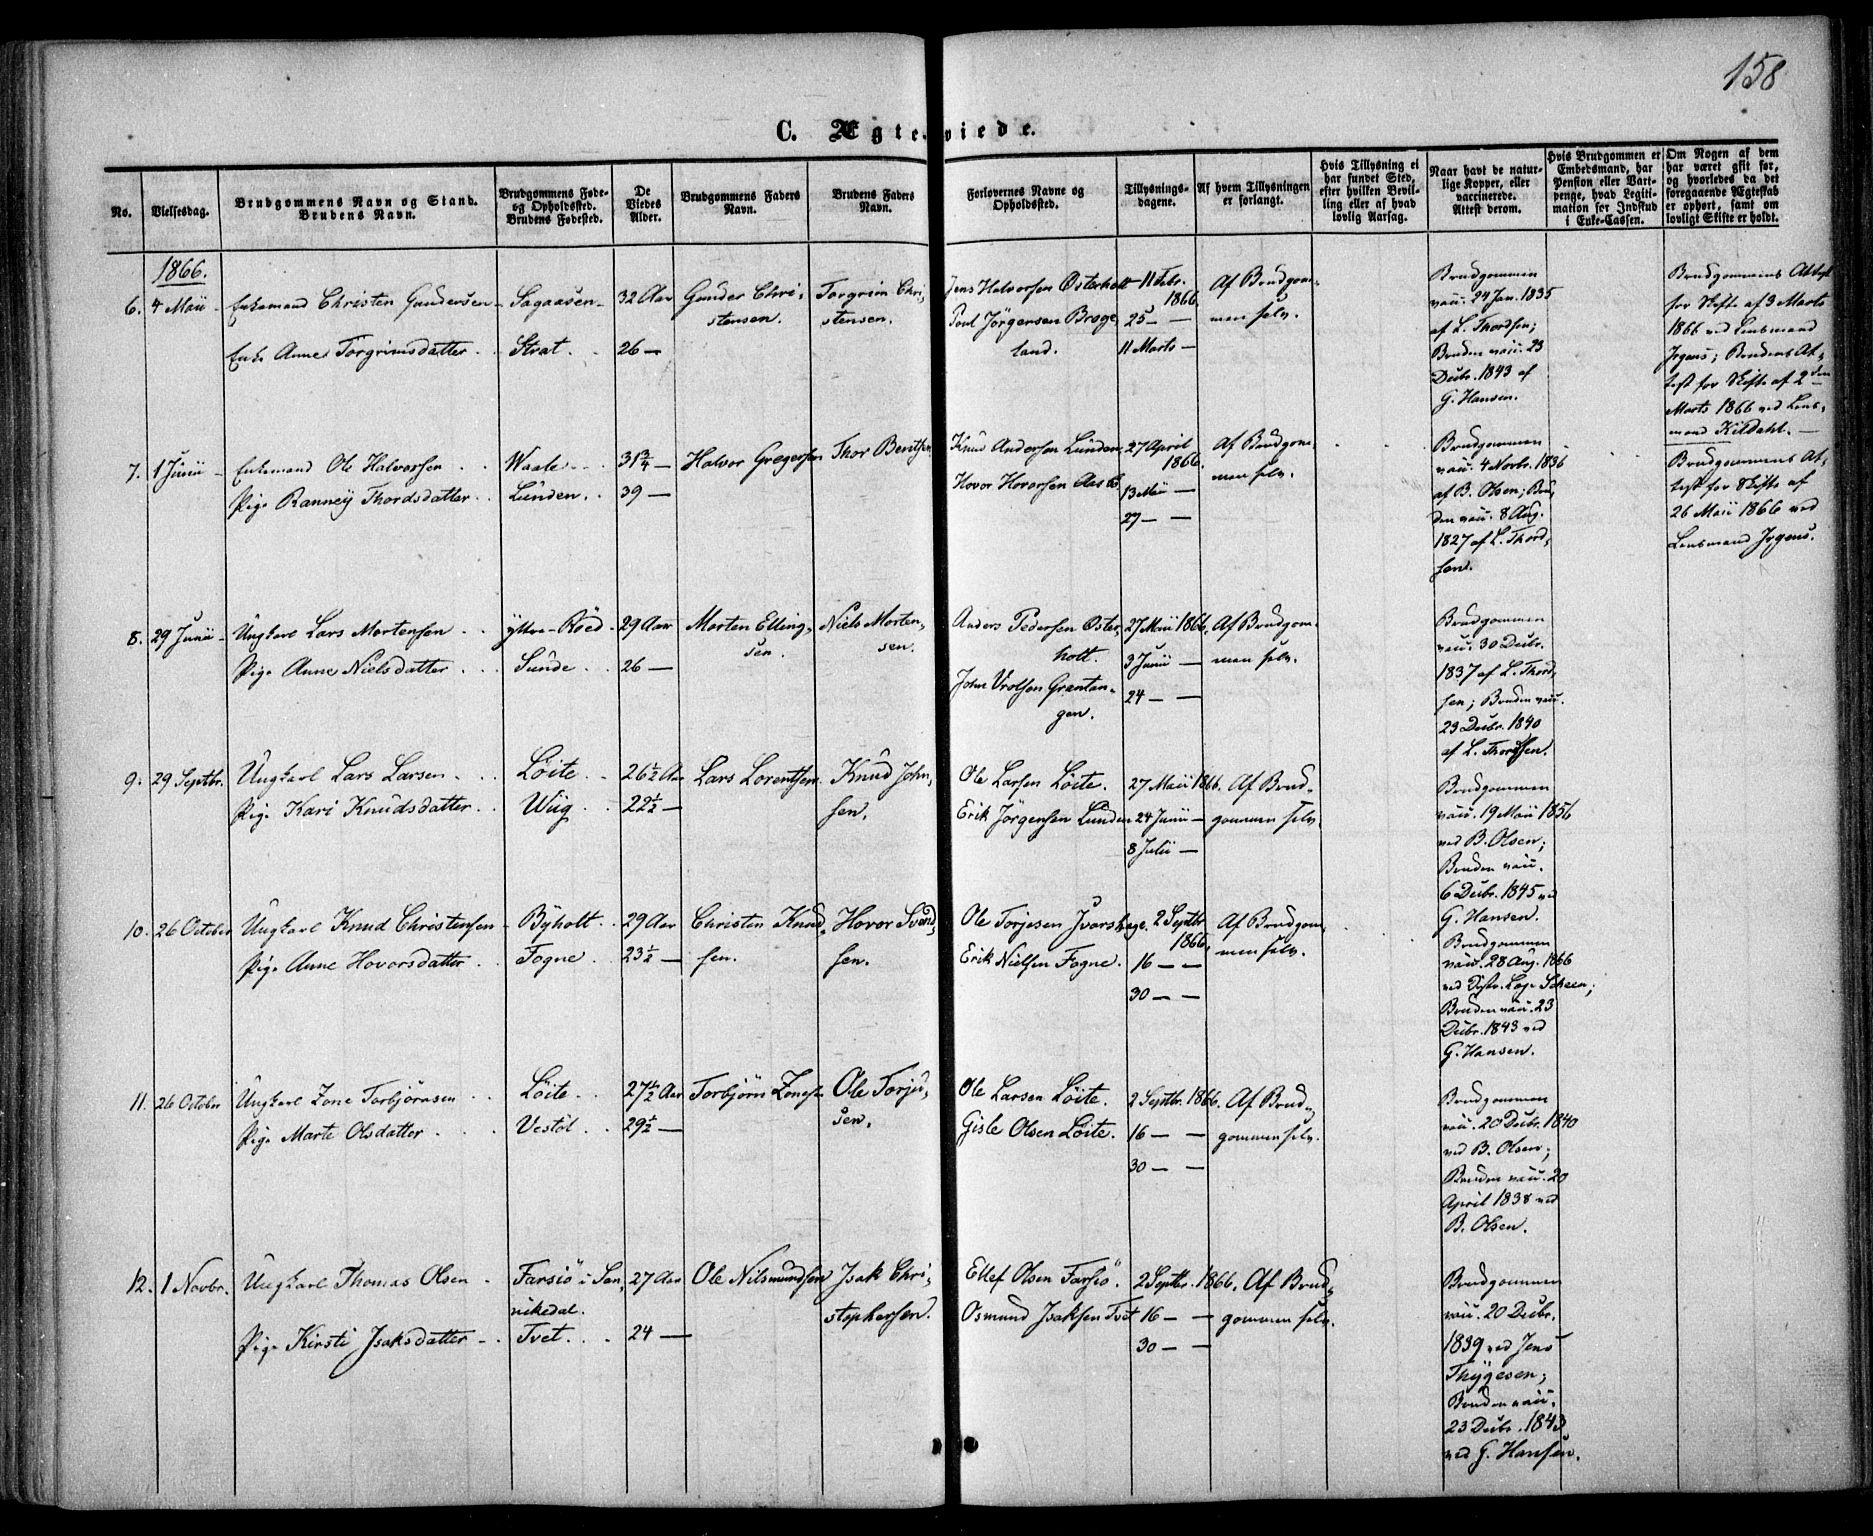 158
C. Ægteviede.
No.
Vielsesdag.
Brudgommens Navn og Stand.
Brudens Navn.
Brudgommens Føde-
og Opholdssted.
Brudens Fødested.
De
Viedes
Alder.
Brudgommens Faders
Navn.
Brudens Faders
Navn.
Forlovernes Navne og
Opholdssted.
Tillysnings-
dagene.
Af hvem Tillysningen
er forlangt.
Hvis Tillysning ei
har fundet Sted,
efter hvilken Bevil-
ling eller af hvad
lovlig Aarsag.
Naar havt de natur-
lige Kopper, eller
vaccinerede.
Attest derom.
Hvis Brudgommen er
Embedsmand, har
Pension eller Vart-
penge, hvad Legiti-
mation for Indskud
i Enke-Cassen.
Om Nogen af dem
har været gift før,
og hvorledes da det
foregaaende Ægteskab
er ophørt, samt om
lovligt Skifte er holdt.
1866.
6. 4 Maii - Enkemand Christen Gundersen - Sagaasen - 32 Aar Gunder Chri-
stensen. Torgrim Chri-
stensen. Jens Halvorsen Østerholt - 11 Febr.
1866 Af Brudgom-
men selv.
Poul Jörgensen Brage
land. 25 — —
Enke Anne Torgrimsdatter . . Strat. . 26 — 11 Marts —
Brudgommen
vacc. 24 Jan. 1835
af L. Thordsen;
Bruden vacc. 23
Decbr. 1843 af
G. Hansen.
Brudgommens Attest
for Skifte af 3 Marts
1866 ved Lensmand
Jrgens; Brudens At-
test for Skifte af 2den
Marts 1866 ved Lens-
mand Kildahl. —
7. 1 Junii - Enkemand Ole Halvorsen . . Waale . . 31 3/4 — Halvor Gregersen Thor Berntsen Knud Andersen Lunden 27 April
1866. Af Brudgom-
men selv.
Pige Ranneÿ Thordsdatter . . Lunden . . 39 — Hovor Hovorsen Aasb 13 Mai —
27 — —
Brudgommen
vacc. 4 Novbr. 1836
af B. Olsen; Bru-
den vacc. 8 Aug.
1827 af L. Thord-
sen.
Brudgommens At-
test for Skifte af
26 Maii 1866 ved
Lensmand Jrgens.
8. 29 Junii - Ungkarl Lars Mortensen . . ÿttre-Röed - 29 Aar Morten Elling-
sen. Niels Morten-
sen. Anders Pedersen Öster-
holt. 27 Maii 1866. Af Brudgom-
men selv.
Pige Anne Nielsdatter . . Sunde . . 26 — 3 Junii —
John Vrolsen Grantan-
gen. 24 — —
Brudgommen
vacc. 30 Decbr.
1837 af L. Thord-
sen; Bruden vacc.
23 Decbr. 1840
af L. Thordsen.
9. 29 Septbr. Ungkarl Lars Larsen . . . Löite . . 26 1/2 Aar Lars Lorentsen Knud John-
sen. Ole Larsen Löite. 27 Maii 1866. Af Brud-
gommen selv.
Pige Kari Knudsdatter . . Wiig . . 22 1/2 — Erik Jörgensen Lunden 24 Junii —
8 Julii —
Brudgommen
vacc. 19 Maii 1856
ved B. Olsen;
Bruden vacc.
6 Decbr. 1845 ved
G. Hansen.
10. 26 October Ungkarl Knud Christensen - Bÿholt . . 29 Aar Christen Knud-
sen. Hovor Svend-
sen. Ole Torjesen Jvarshage. 2 Septbr.
1866. Af Brudgom-
men selv.
Pige Anne Hovorsdatter . . Fogne . . 23 1/2 — Erik Nielsen Fogne. 16 — —
30 — —
Brudgommen
vacc. 28 Aug. 1866
ved Distr. Læge Scheen;
Bruden vacc. 23
Decbr. 1843 ved
G. Hansen.
11. 26 October Ungkarl Zone Torbjörnsen . . Löite . . 27 1/2 Aar Torbjörn Zonesen Ole Torju-
sen. Ole Larsen Löite. 2 Septbr. 1866. Af Brud-
gommen selv.
Pige Marte Olsdatter . . Vestöl . . 29 1/2 — Gisle Olsen Löite. 16 — —
30 — —
Brudgommen
vacc. 20 Decbr. 1840
ved B. Olsen;
Bruden vacc. 20
April 1838 ved
B. Olsen.
12. 1 Novbr. Ungkarl Thomas Olsen - Farsiö i San-
nikedal. 27 Aar Ole Nilsmundsen Jsak Chri-
stophersen. Ellef Olsen Farsiö. 2 Septbr. 1866. Af Brud-
gommen selv.
Pige Kirsti Jsaksdatter - . Tvet . . 24 — Osmund Jsaksen Tvet 16 — —
30 — —
Brudgommen
vacc. 20 Decbr.
1839 ved Jens
Thÿgesen;
Bruden vacc.
23 Decbr. 1843
ved G. Hansen.